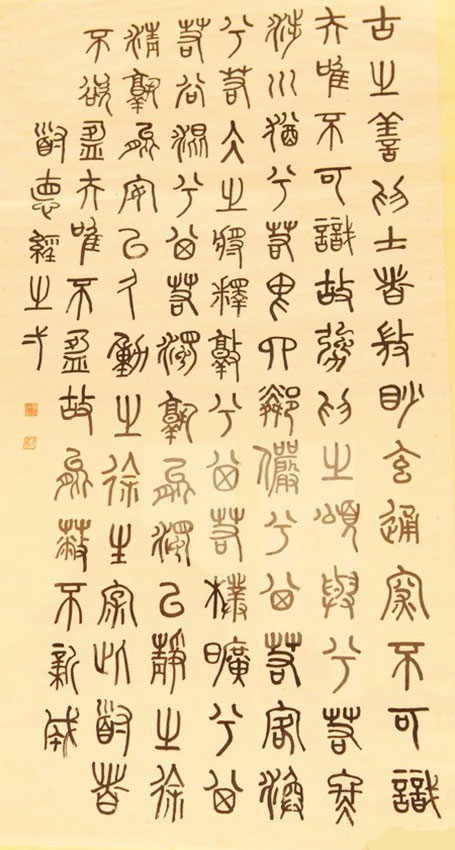 古之善為士者微眇玄通深不可識
夫唯不可識故強為之頌與兮若冬
涉川猶兮若畏四鄰儼兮其若客渙
兮若冰之將釋敦兮其若樸曠兮其
若谷混兮其若濁孰能濁以靜之徐
清孰能安以久動之徐生保此道者
不欲盈夫唯不盈故能蔽不新成
道德經之